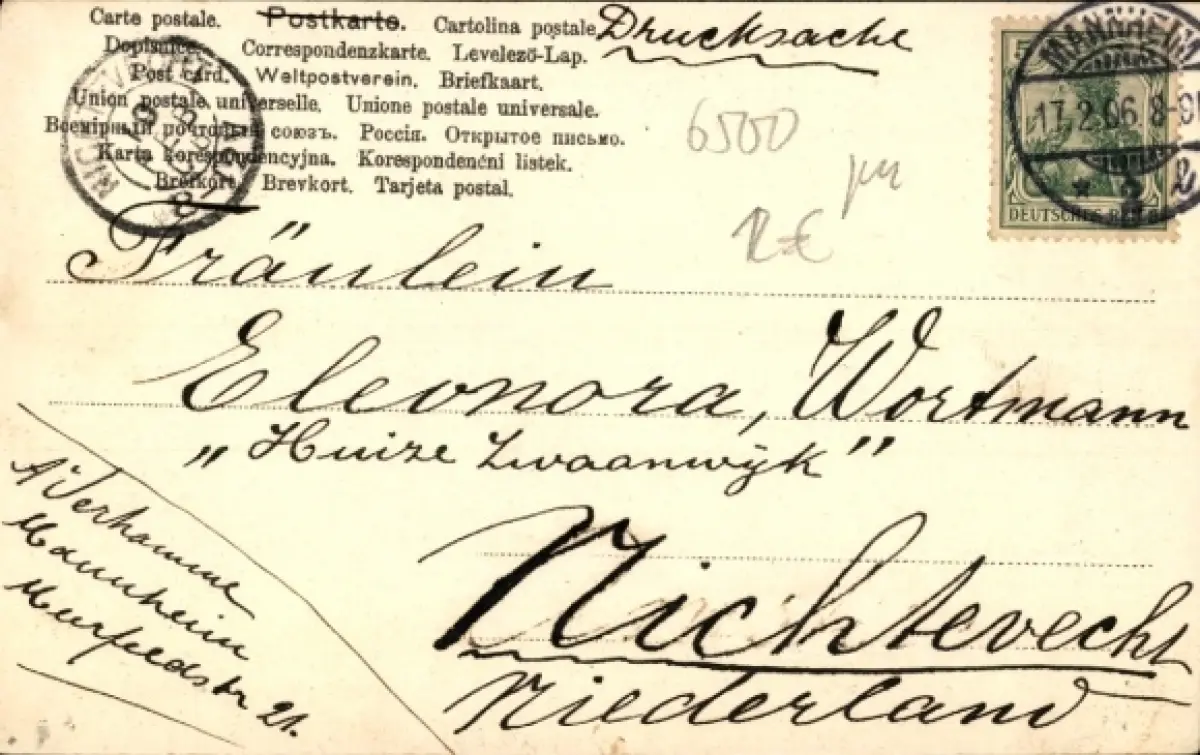 Carte postale. Postkarte. Cartolina postale
Drucksache
Dopisnice. Correspondenzkarte. Levelező-Lap.
Post card. Weltpostverein. Briefkaart.
Union postale universelle. Unione postale universale.
Всемірный почтовый союзъ. Россія. Открытое письмо.
Karta korespondencyjna. Korespondenčni listek.
Brefkort. Brevkort. Tarjeta postal.
MANNHEIM
17.2.06. 8-9
2
DEUTSCHES REICH
6500
12 €
Fräulein
Eleonora, Wortmann
„Huize Zwaanwijk”
Nichtevecht
Niederland
Mannheim
Meerfeldstr 21.